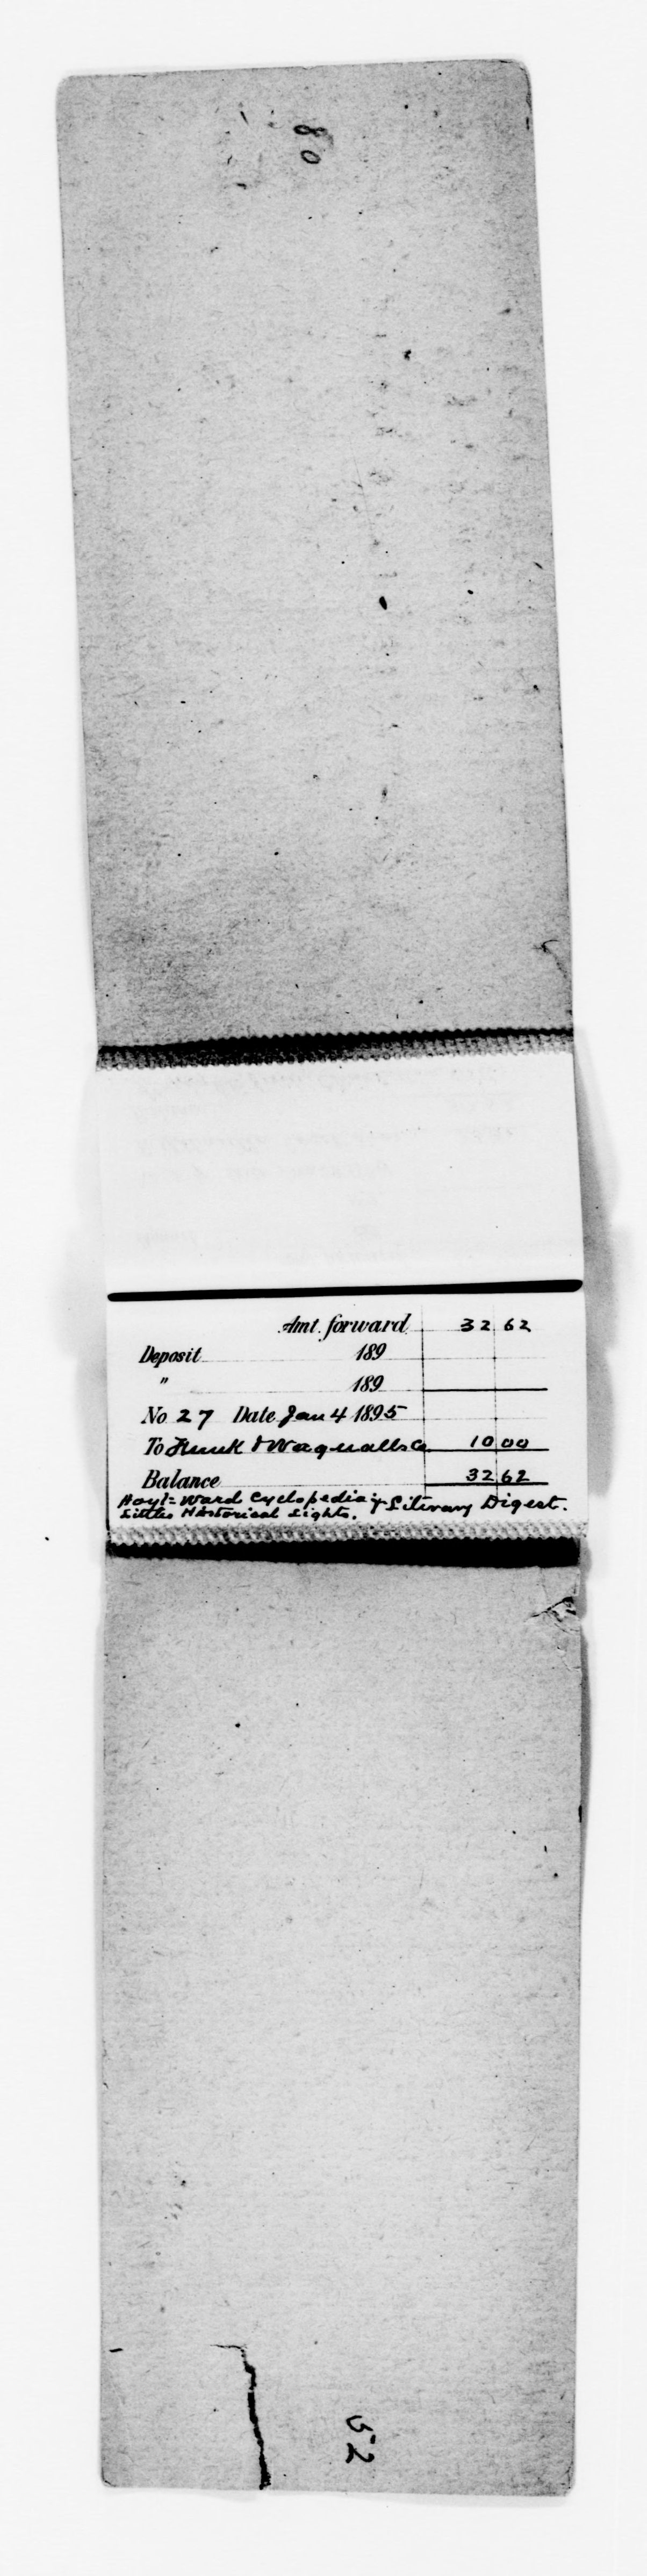 80
Amt. forward 32 62
Deposit 189
" 189
No 27 Date Jan 4 1895
To Funk & Wagnalls Co 10 00
Balance 32 62
Hoyt-Ward Cyclopedia & Literary Digest.
Littles Historical Lights.
52